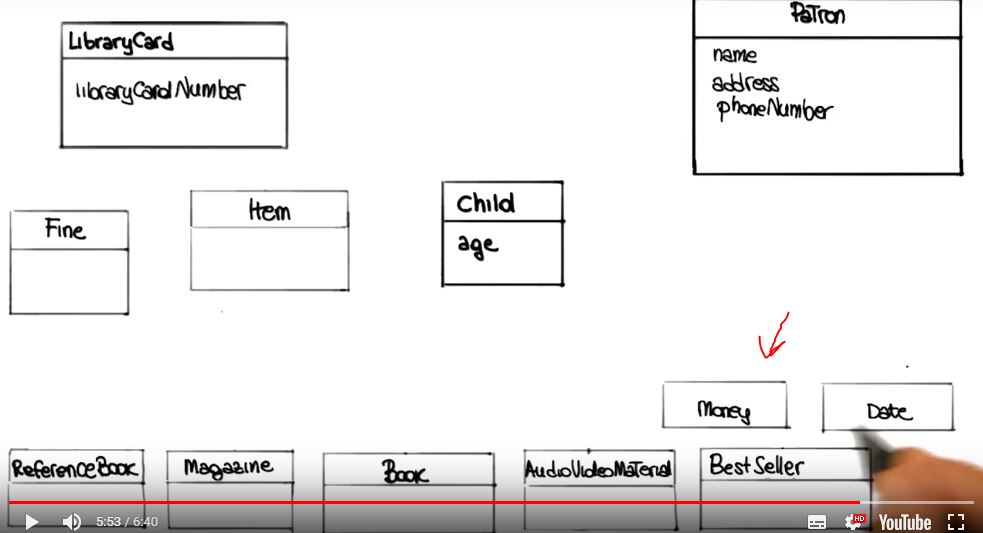 LibraryCard
libraryCardNumber
Patron
name
address
phoneNumber
Fine
Item
Child
age
Money
Date
ReferenceBook
Magazine
Book
AudioVideoMaterial
BestSeller
5:53 / 6:40
HD
YouTube